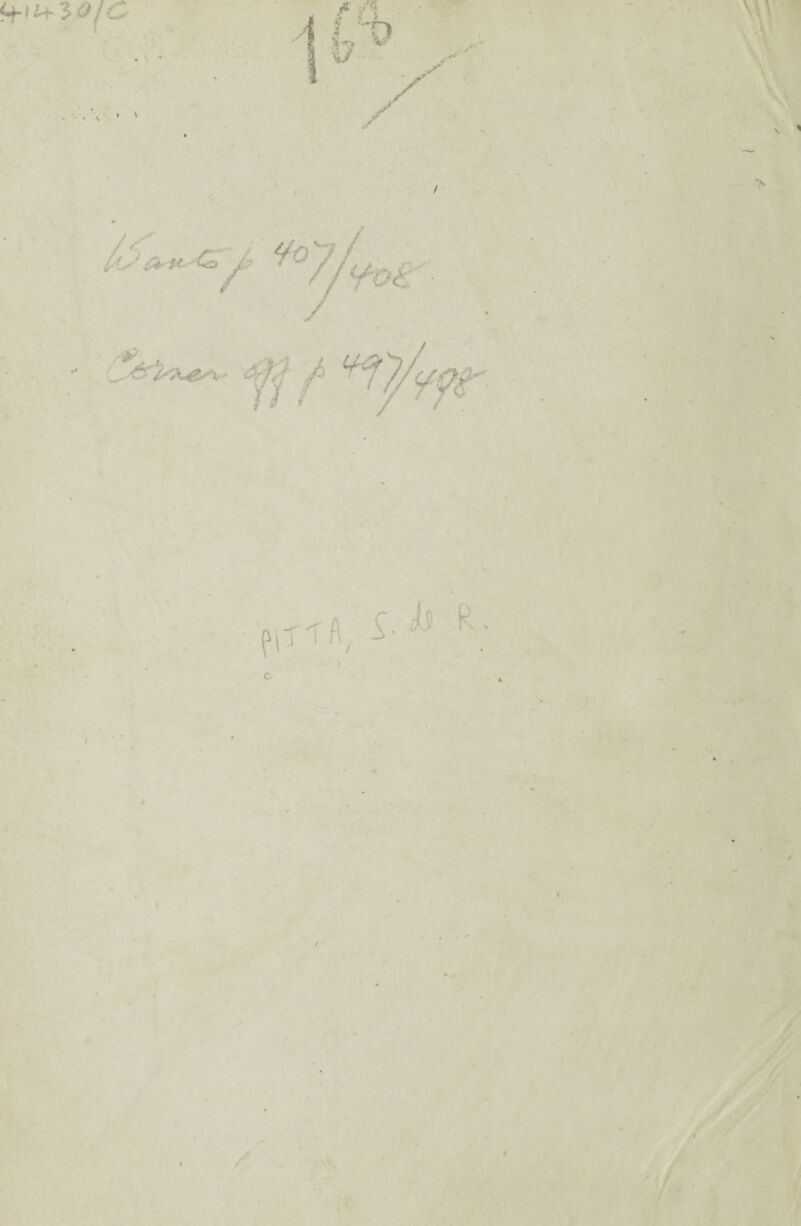 41430/C
Wants p 407/408
Corner off p 497/498
PITTA, S. de R.